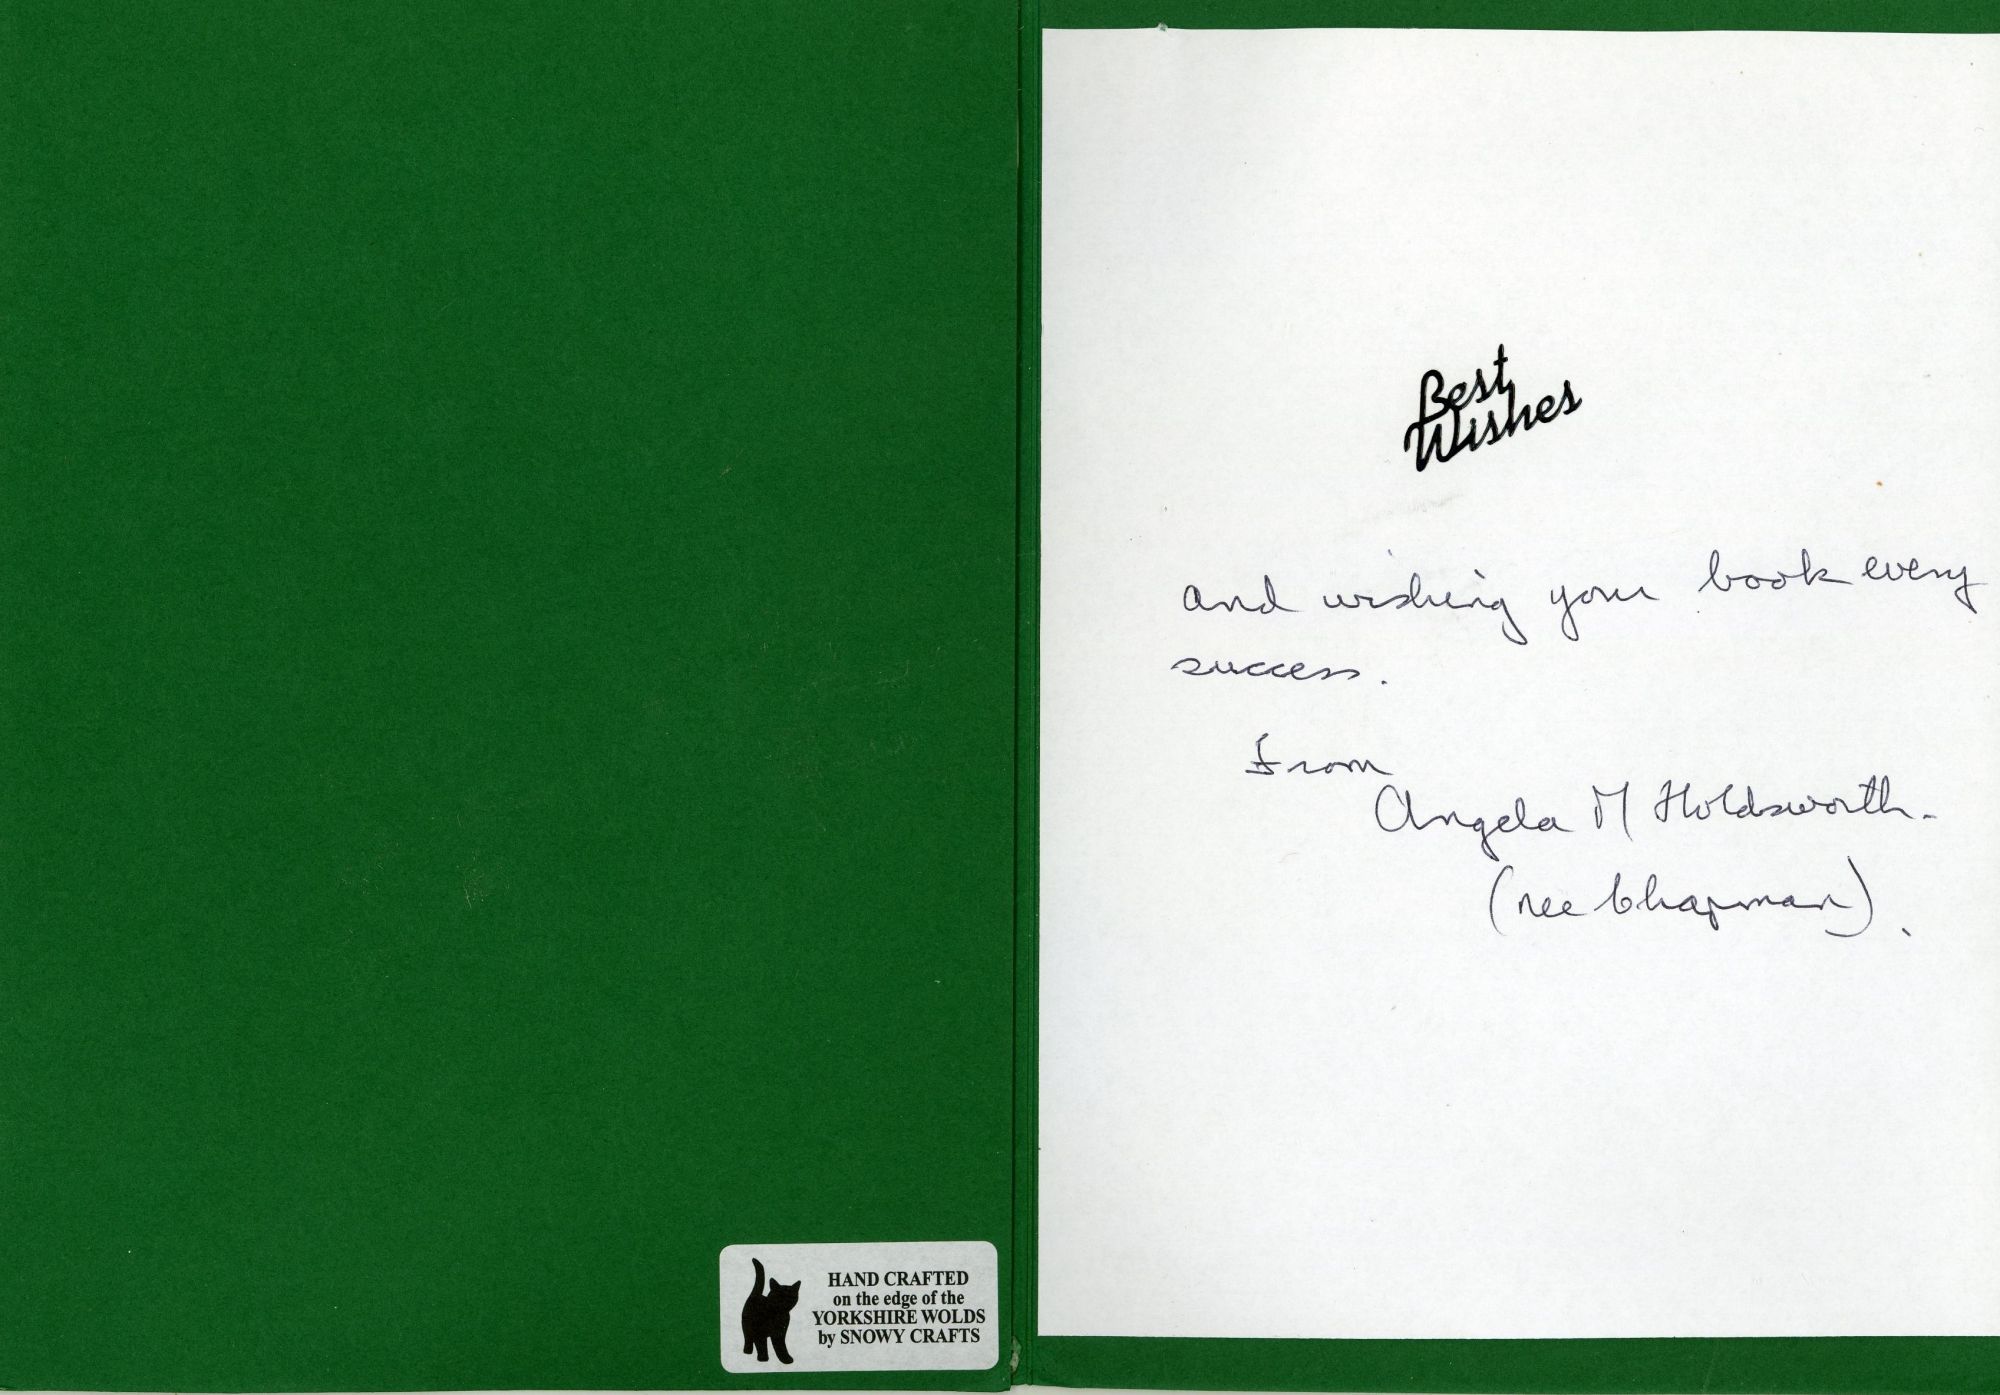 HAND CRAFTED
on the edge of the
YORKSHIRE WOLDS
by SNOWY CRAFTS
Best
Wishes
and wishing your book every
success.
From
Angela M Holdsworth.
(nee Chapman).